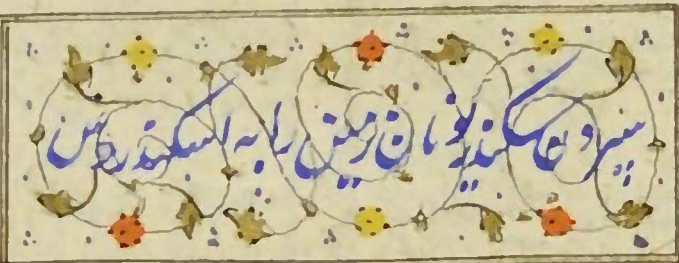 سپردن سکندر یونان زمین را به اسکندروس